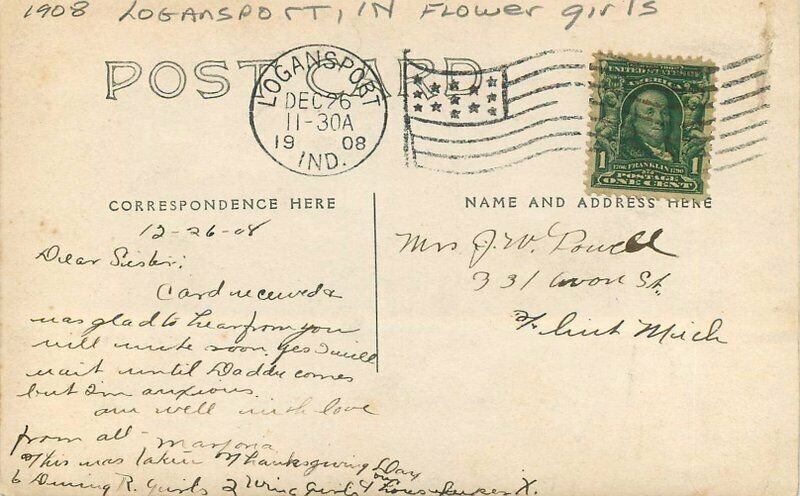 1908 LOGANSPORT, IN Flower girls
POST CARD
LOGANSPORT
DEC 26
11-30A
19 08
IND.
UNITED STATES OF AMERICA
1 1706 FRANKLIN 1790 1
POSTAGE
ONE CENT
CORRESPONDENCE HERE
12-26-08
Dear Sister:
Card received &
was glad to hear from you
will write soon. yes I will
wait until Daddy comes
but I'm anxious.
am well with love
from all - Marjoria
This was taken Thanksgiving Day
6 Dining R. Girls 2 Wing Girls & X.
NAME AND ADDRESS HERE
Mrs J. W. Powell
331 Avon St.
Flint Mich